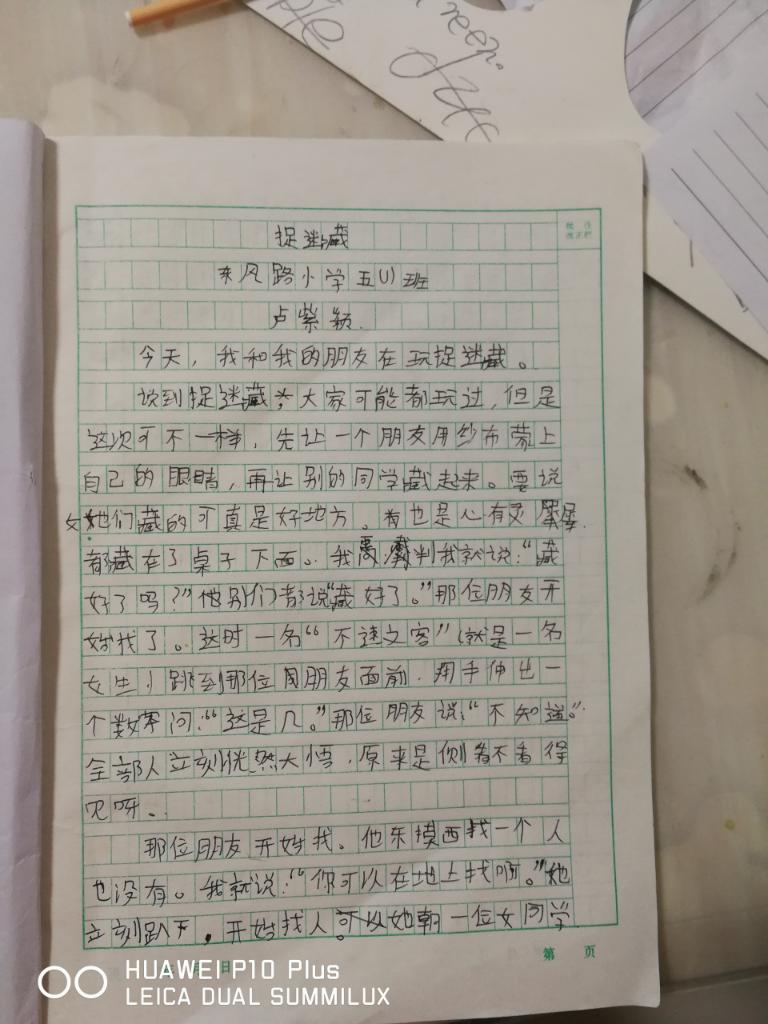 reen.
批注
改正栏
捉迷藏
东风路小学五(1)班
卢紫颖
今天，我和我的朋友在玩捉迷藏。
说到捉迷藏，大家可能都玩过，但是
这次可不一样，先让一个朋友用纱布蒙上
自己的眼睛，再让别的同学藏起来。要说
女她们藏的可真是好地方。也是心有灵犀
都藏在了桌子下面。我裁判我就说：“藏
好了吗？”他别们都说“藏好了。”那位朋友开
始找了。这时一名“不速之客”（就是一名
女生）跳到那位朋友面前，用手伸出一
个数字问：“这是几。”那位朋友说：“不知道。”
全部人立刻恍然大悟，原来是测看不看得
见呀。
那位朋友开始找。他东摸西找一个人
也没有。我就说：“你可以在地上找啊。”她
立刻趴下，开始找人。可以她朝一位女同学
第 页
日
HUAWEI P10 Plus
LEICA DUAL SUMMILUX